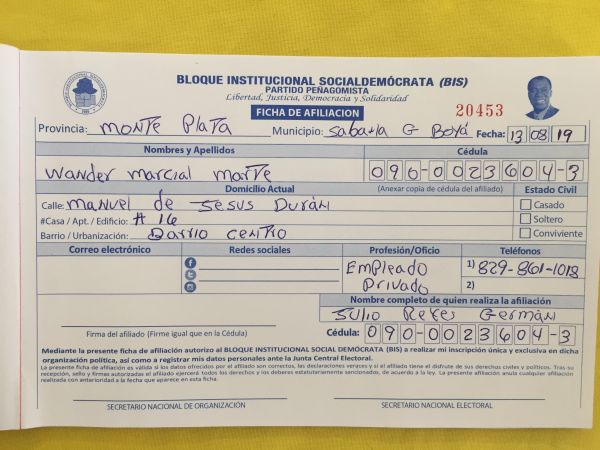 BLOQUE INSTITUCIONAL SOCIALDEMÓCRATA (BIS)
PARTIDO PEÑAGOMISTA
Libertad, Justicia, Democracia y Solidaridad
FICHA DE AFILIACION
20453
Provincia: Monte Plata Municipio: Sabana G Boyá Fecha: 13 08 19
Nombres y Apellidos Cédula
Wander Marcial Marte 090-0023604-3
Domicilio Actual (Anexar copia de cédula del afiliado) Estado Civil
Calle: Manuel de Jesus Durán Casado
#Casa / Apt. / Edificio: # 16 Soltero
Barrio / Urbanización: Barrio Centro Conviviente
Correo electrónico Redes sociales Profesión/Oficio Teléfonos
Empleado 1) 829-861-1013
Privado 2)
Nombre completo de quien realiza la afiliación
Julio Reyes Germán
Firma del afiliado (Firme igual que en la Cédula) Cédula: 090-0023604-3
Mediante la presente ficha de afiliación autorizo al BLOQUE INSTITUCIONAL SOCIAL DEMÓCRATA (BIS) a realizar mi inscripción única y exclusiva en dicha
organización política, así como a registrar mis datos personales ante la Junta Central Electoral.
La presente ficha de afiliación es válida si los datos ofrecidos por el afiliado son correctos, las declaraciones veraces y si el afiliado tiene el disfrute de sus derechos civiles y políticos. Tras su
recepción, sello y firmas autorizadas el afiliado ejercerá todos los derechos y los deberes estatutariamente sancionados, de acuerdo a la ley. La presente anula cualquier afiliación
realizada con anterioridad a la fecha que aparece en esta ficha.
SECRETARIO NACIONAL DE ORGANIZACIÓN SECRETARIO NACIONAL ELECTORAL